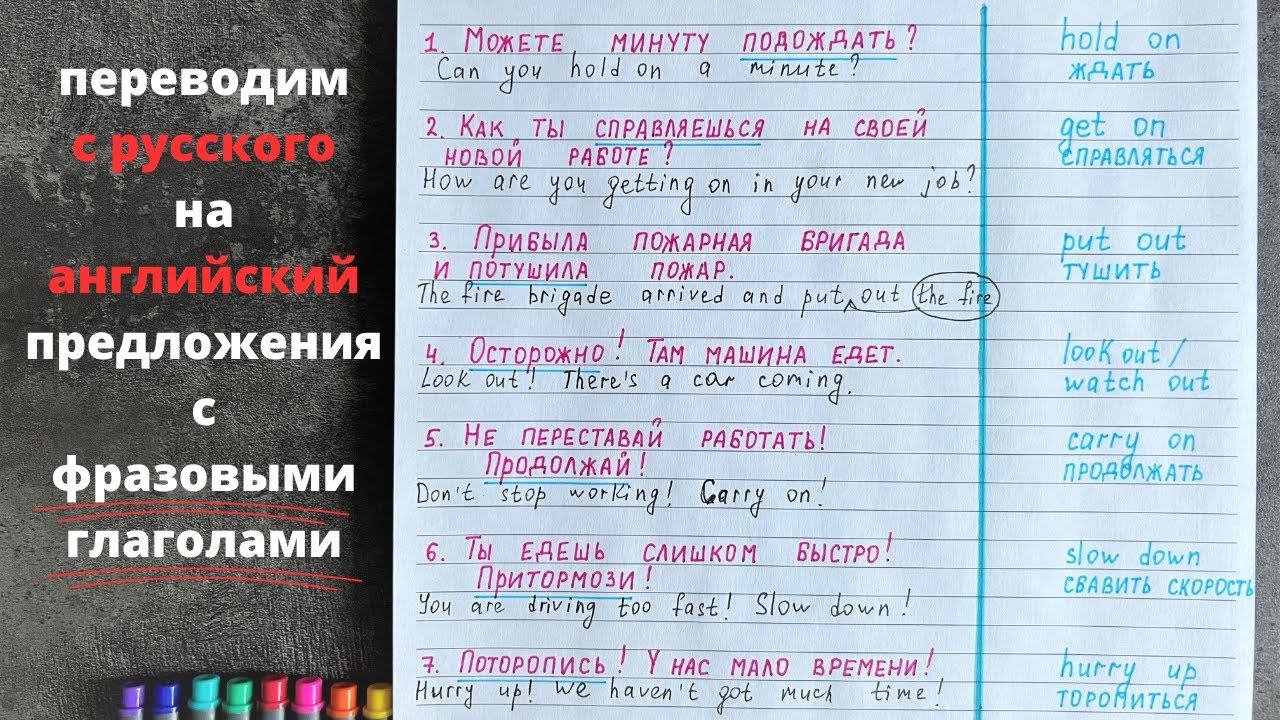 переводим
с русского
на
английский
предложения
с
фразовыми
глаголами
1. Можете минуту подождать?
Can you hold on a minute?
2. Как ты справляешься на своей
новой работе?
How are you getting on in your new job?
3. Прибыла пожарная бригада
и потушила пожар.
The fire brigade arrived and put out the fire
4. Осторожно! Там машина едет.
Look out! There's a car coming.
5. Не переставай работать!
Продолжай!
Don't stop working! Carry on!
6. Ты едешь слишком быстро!
Притормози!
You are driving too fast! Slow down!
7. Поторопись! У нас мало времени!
Hurry up! We haven't got much time!
hold on
ждать
get on
справляться
put out
тушить
look out /
watch out
carry on
продолжать
slow down
сбавить скорость
hurry up
торопиться